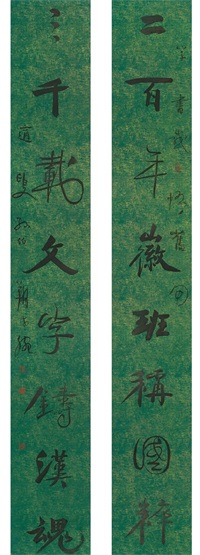 二百年徽班稱國粹
三千載文字鑄漢魂